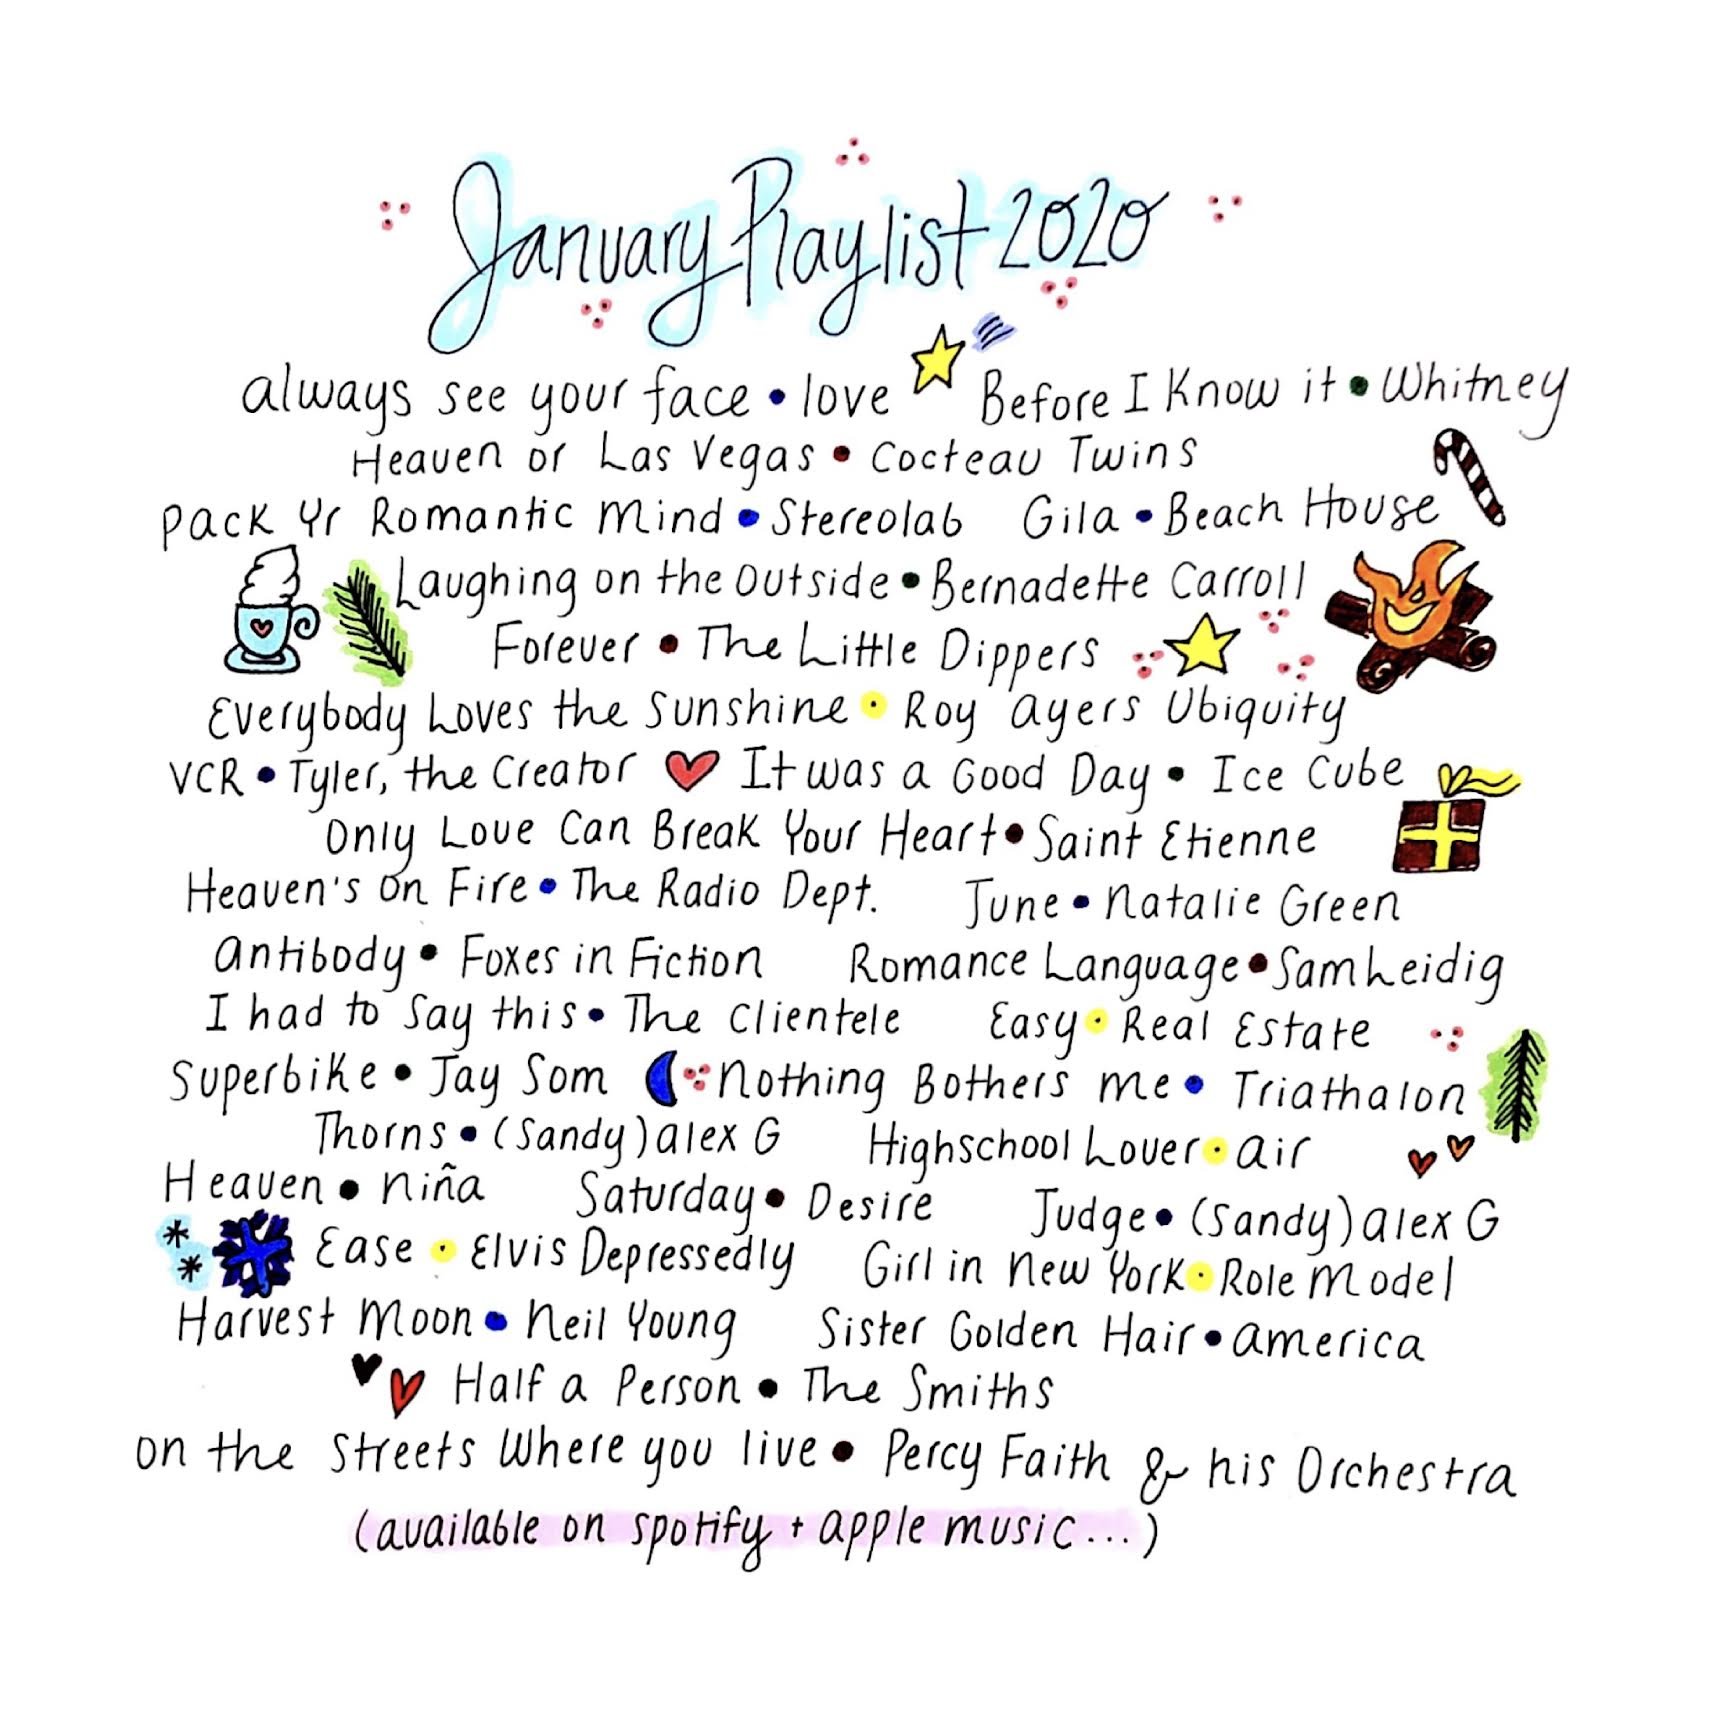 January Playlist 2020
always see your face • love Before I Know it • Whitney
Heaven or Las Vegas • Cocteau Twins
Pack Yr Romantic Mind • Stereolab Gila • Beach House
Laughing on the Outside • Bernadette Carroll
Forever • The Little Dippers
Everybody Loves the Sunshine • Roy Ayers Ubiquity
VCR • Tyler, the Creator It was a Good Day • Ice Cube
Only Love Can Break Your Heart • Saint Etienne
Heaven's on Fire • The Radio Dept. June • Natalie Green
Antibody • Foxes in Fiction Romance Language • Sam Leidig
I had to Say this • The Clientele Easy • Real Estate
Superbike • Jay Som Nothing Bothers Me • Triathalon
Thorns • (Sandy) alex G Highschool Lover • air
Heaven • Niña Saturday • Desire Judge • (Sandy) alex G
Ease • Elvis Depressedly Girl in New York • Role Model
Harvest Moon • Neil Young Sister Golden Hair • america
Half a Person • The Smiths
on the Streets Where you live • Percy Faith & his Orchestra
(available on spotify + apple music...)